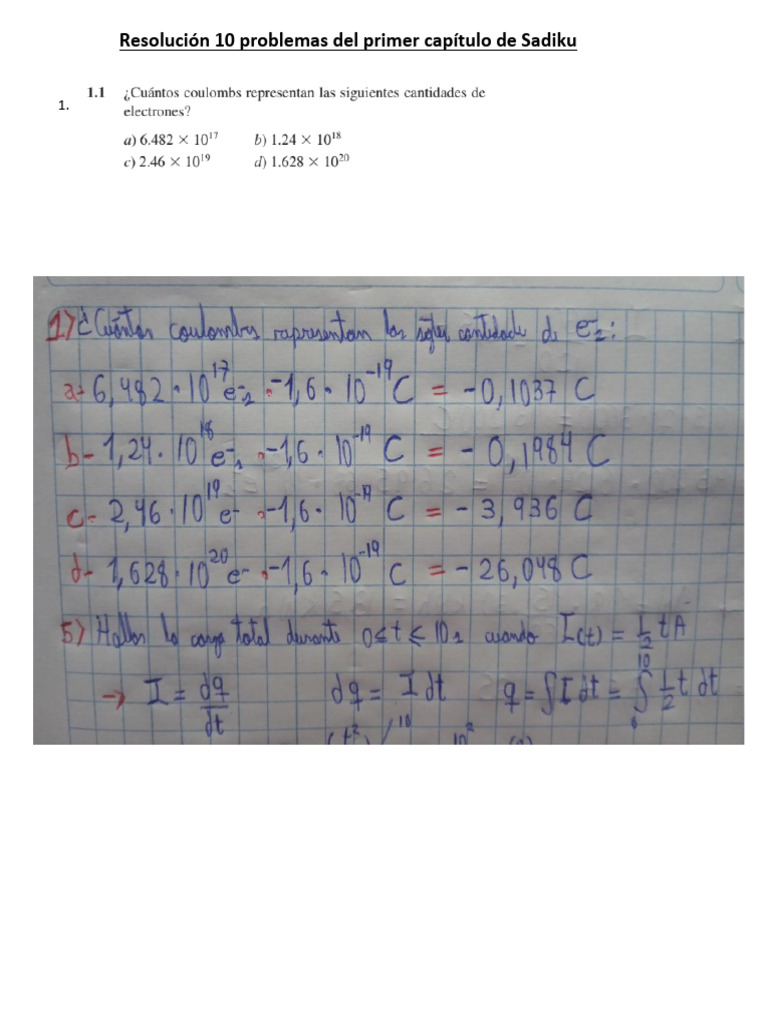 Resolución 10 problemas del primer capítulo de Sadiku
1.1 ¿Cuántos coulombs representan las siguientes cantidades de
1.
electrones?
a) 6.482 × 10¹⁷ b) 1.24 × 10¹⁸
c) 2.46 × 10¹⁹ d) 1.628 × 10²⁰
1) ¿Cuántos coulombs representan las cantidade de e⁻s:
a- 6,482·10¹⁷ e⁻s · -1,6·10⁻¹⁹ C = -0,1037 C
b- 1,24·10¹⁸ e⁻s · -1,6·10⁻¹⁹ C = -0,1984 C
c- 2,46·10¹⁹ e⁻ · -1,6·10⁻¹⁹ C = -3,936 C
d- 1,628·10²⁰ e⁻ · -1,6·10⁻¹⁹ C = -26,048 C
5) Hallar la carga total durante 0≤t≤10s cuando I(t) = 1/2 t A
→ I = dq/dt dq = I dt q = ∫I dt = ∫₀¹⁰ 1/2 t dt